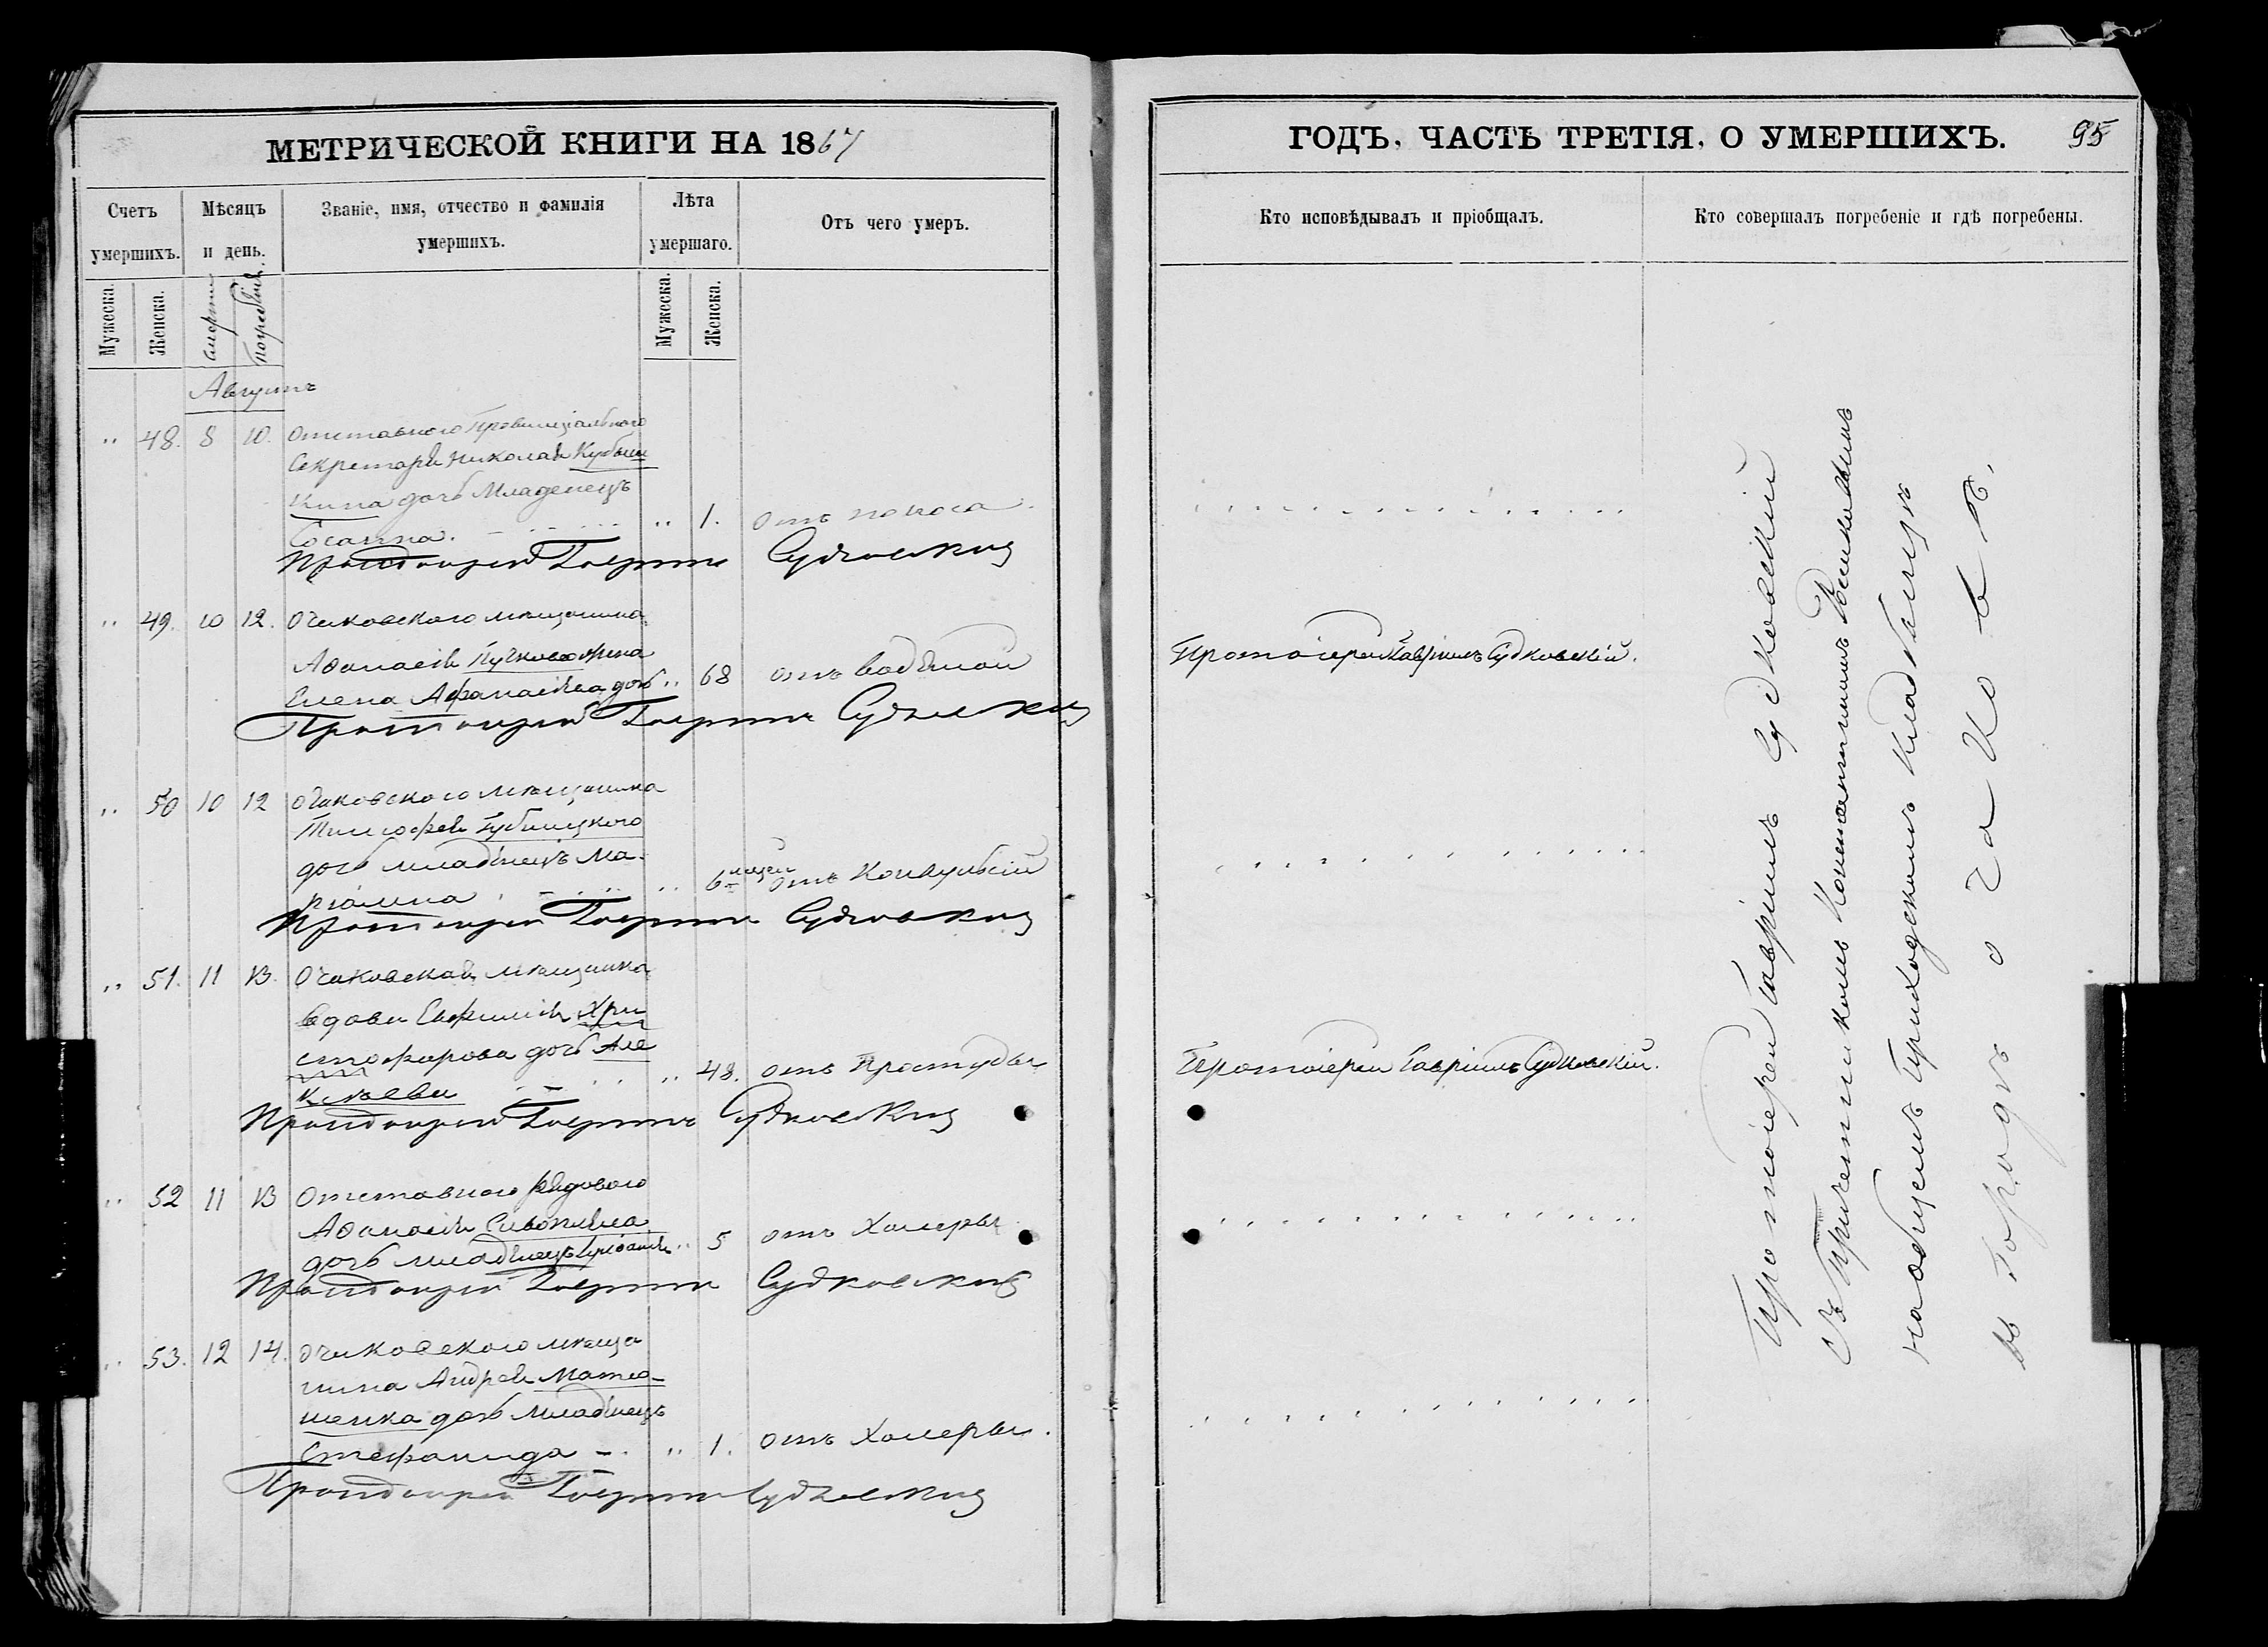 МЕТРИЧЕСКОЙ КНИГИ НА 1867
Счетъ умершихъ.
Мѣсяцъ и день.
Званіе, имя, отчество и фамилія умершихъ.
Лѣта умершаго.
Отъ чего умеръ.
Мужеска.
Женска.
смерти
погребѣнія.
Мужеска.
Женска.
Августъ
" 48. 8 10. Отставного Провинціальнаго
Секретаря Николая
кина дочь Младенецъ
Сосанна. " 1. отъ поноса.
Протоіерей Гавріилъ Судковскій
" 49. 10 12. Очаковского мѣщанина
Аѳанасія жена
Елена Афанасіева дочь " 68 отъ водяной
Протоіерей Гавріилъ Судковскій
" 50 10 12 Очаковского мѣщанина
Тимофея Губницкого
дочь младѣнецъ Ма-
ріамна " 6 отъ Конвульсій
Протоіерей Гавріилъ Судковскій
" 51. 11 13. Очаковская мѣщанка
вдова Евфимія Хри
стофорова дочь Але
ксѣева " 48. отъ Простуды
Протоіерей Гавріилъ Судковскій
" 52 11 13 Отставного рядового
Аѳанасія
дочь младѣнецъ " 5 отъ Холеры
Протоіерей Гавріилъ Судковскій
" 53. 12 14. Очаковского мѣща
нина Андрея Матю-
шенка дочь Младѣнецъ
Стефанида " 1. отъ Холеры.
Протоіерей Гавріилъ Судковскій
ГОДЪ, ЧАСТЬ ТРЕТІЯ, О УМЕРШИХЪ. 95
Кто исповѣдывалъ и пріобщалъ.
Кто совершалъ погребеніе и гдѣ погребены.
Протоіерей Гавріилъ Судковскій.
Протоіерей Гавріилъ Судковскій.
Протоіерей Гавріилъ Судковскій
съ Причетникомъ Константиномъ
на общемъ Приходскомъ Кладбищѣ
въ городѣ Очаковѣ.